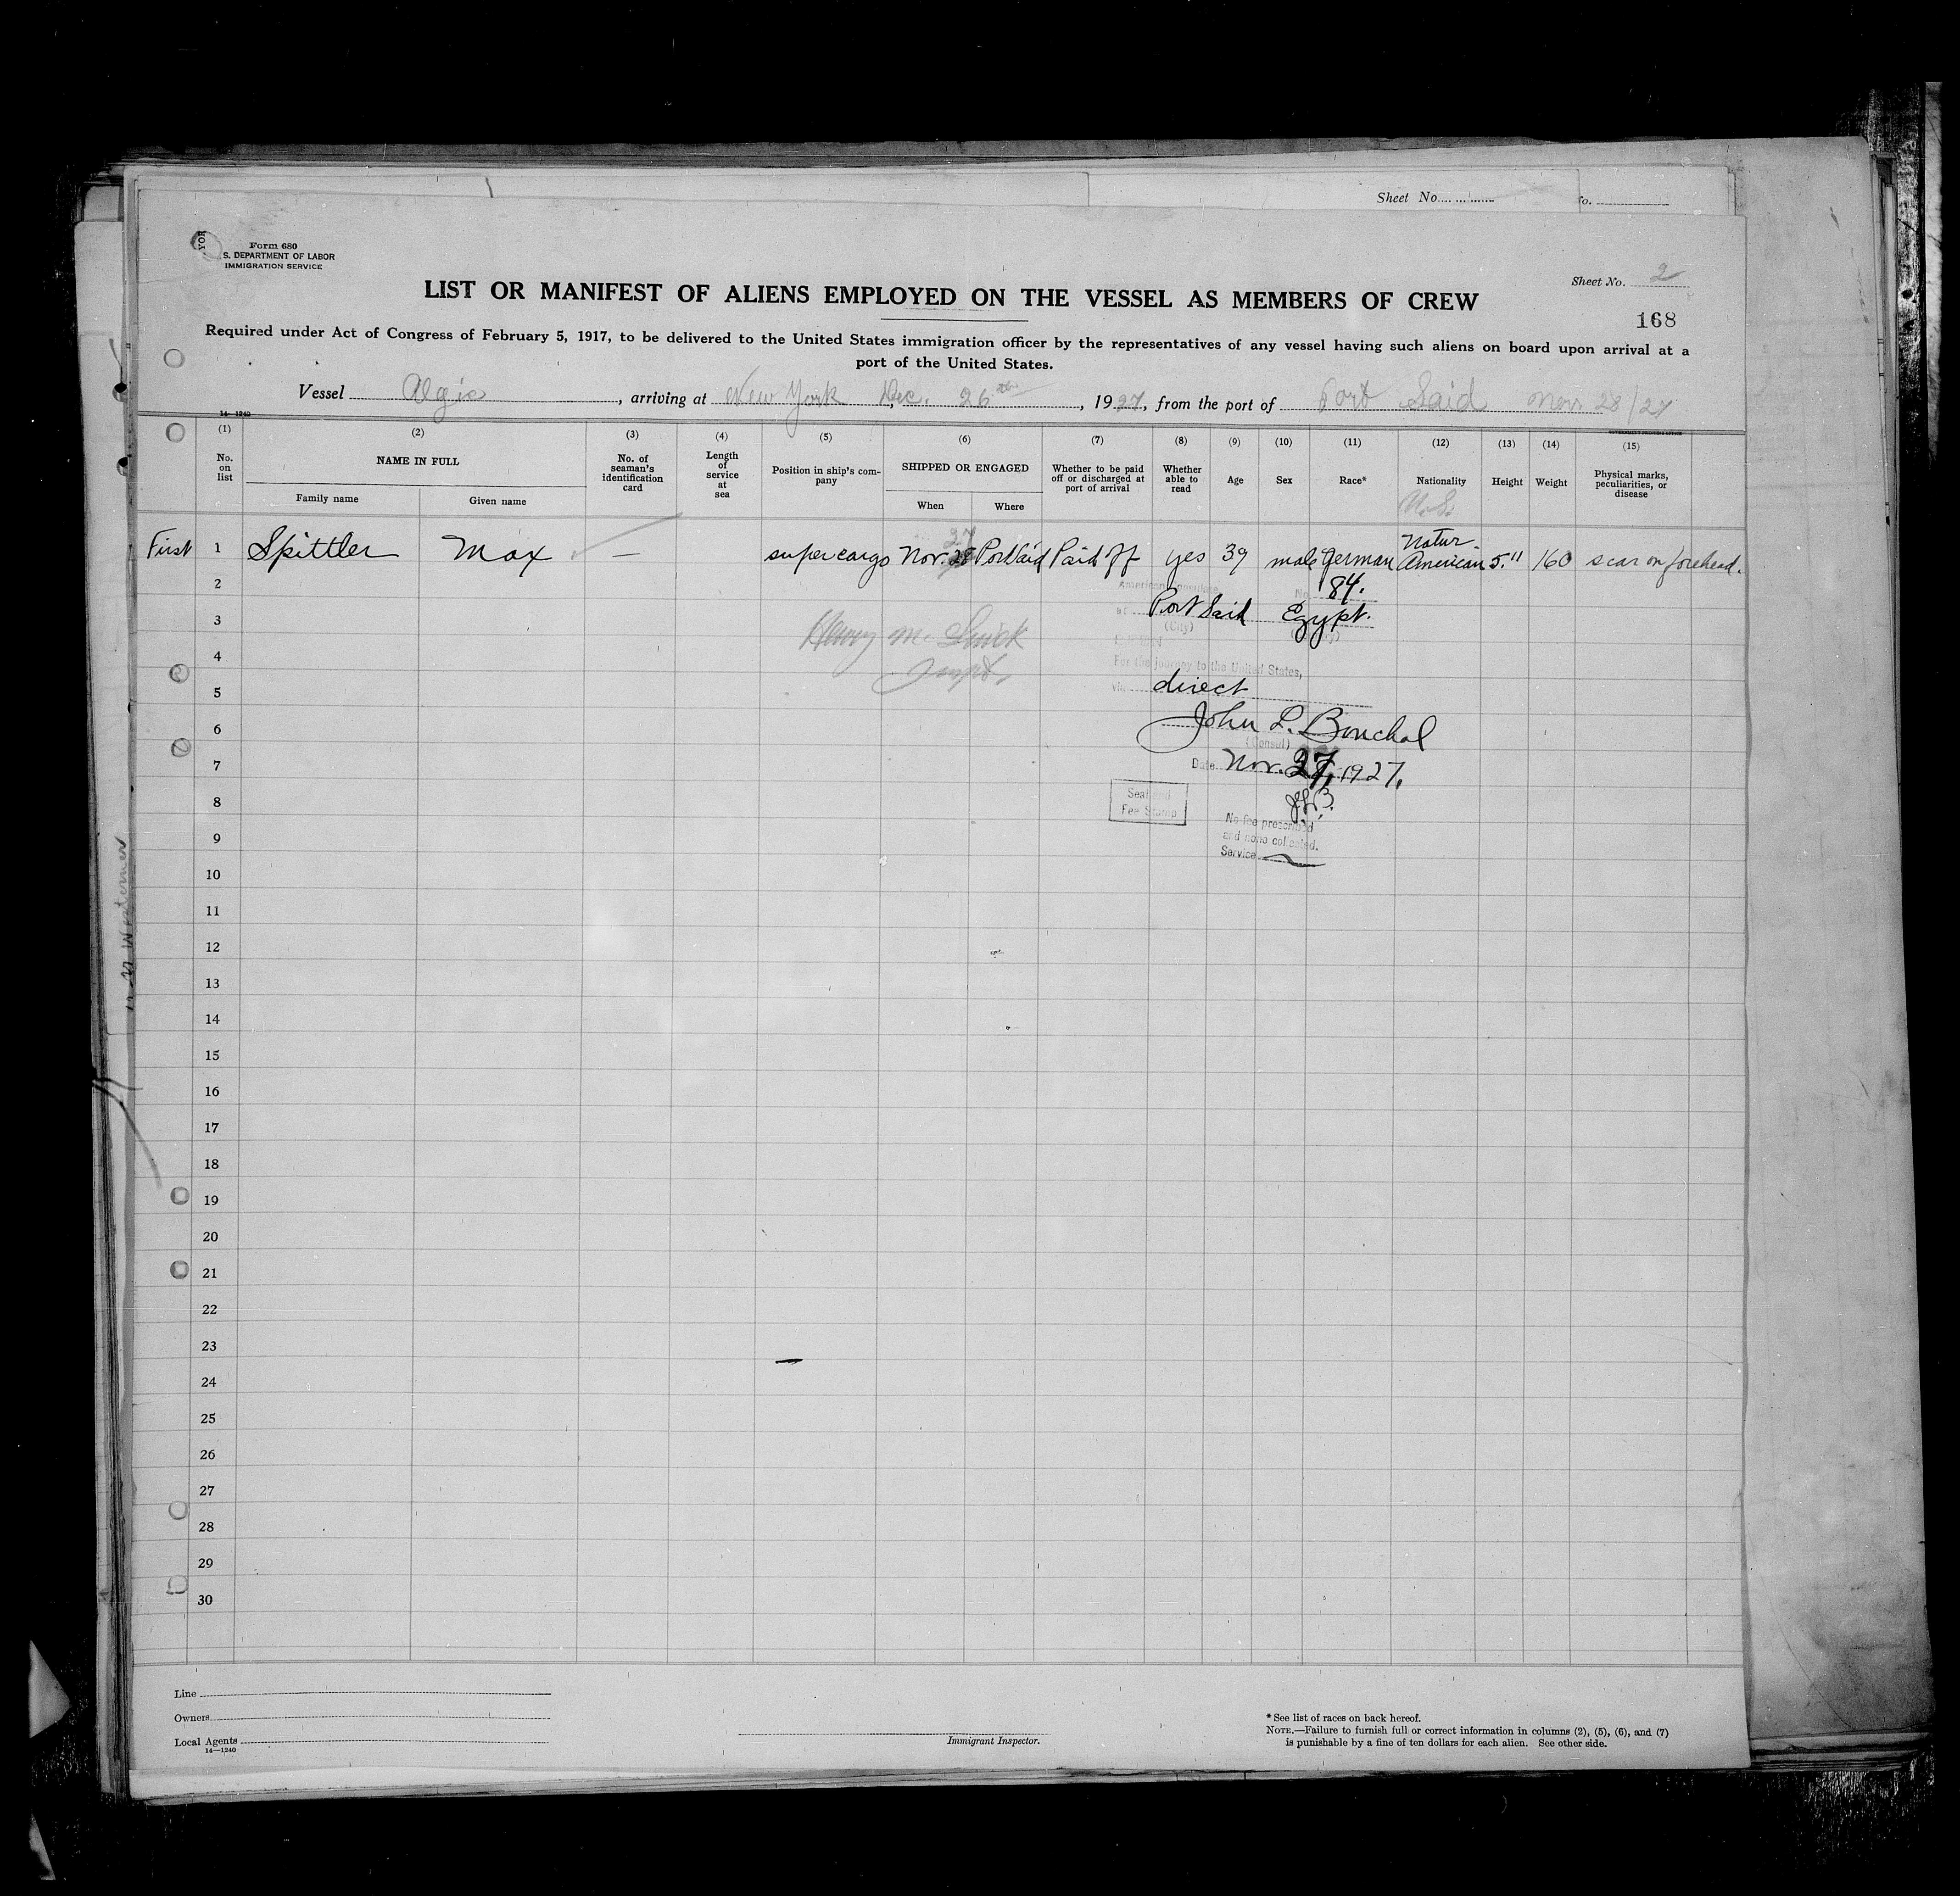 Sheet No.
o.
Form 680
S. DEPARTMENT OF LABOR
IMMIGRATION SERVICE
Sheet No. 2
LIST OR MANIFEST OF ALIENS EMPLOYED ON THE VESSEL AS MEMBERS OF CREW
168
Required under Act of Congress of February 5, 1917, to be delivered to the United States immigration officer by the representatives of any vessel having such aliens on board upon arrival at a
port of the United States.
Vessel Algic, arriving at New York Dec. 26th, 1927, from the port of Port Said Nov. 28/27
14-1240
(1) (2) (3) (4) (5) (6) (7) (8) (9) (10) (11) (12) (13) (14) (15)
No. on list
NAME IN FULL
Family name
Given name
No. of seaman's identification card
Length of service at sea
Position in ship's company
SHIPPED OR ENGAGED
When
Where
Whether to be paid off or discharged at port of arrival
Whether able to read
Age
Sex
Race*
Nationality
Height
Weight
Physical marks, peculiarities, or disease
U.S.
27
First 1 Spittler Max — supercargo Nov. 28 Port Said Paid off yes 39 male German Natur. American 5.11 160 scar on forehead.
2
American Consulate No. 84.
at Port Said Egypt.
(City)
3
Henry M.
4
Inspt.
For the journey to the United States,
5
via direct
6
John L. Bouchal
(Consul)
7
Date Nov. 27, 1927.
J.L.B.
8
Seal and
Fee Stamp
No fee prescribed
and none collected.
Service
9
10
11
12
13
14
15
16
17
18
19
20
21
22
23
24
25
26
27
28
29
30
Line
Owners
Local Agents
14—1240
Immigrant Inspector.
* See list of races on back hereof.
NOTE.—Failure to furnish full or correct information in columns (2), (5), (6), and (7)
is punishable by a fine of ten dollars for each alien. See other side.
Westerner